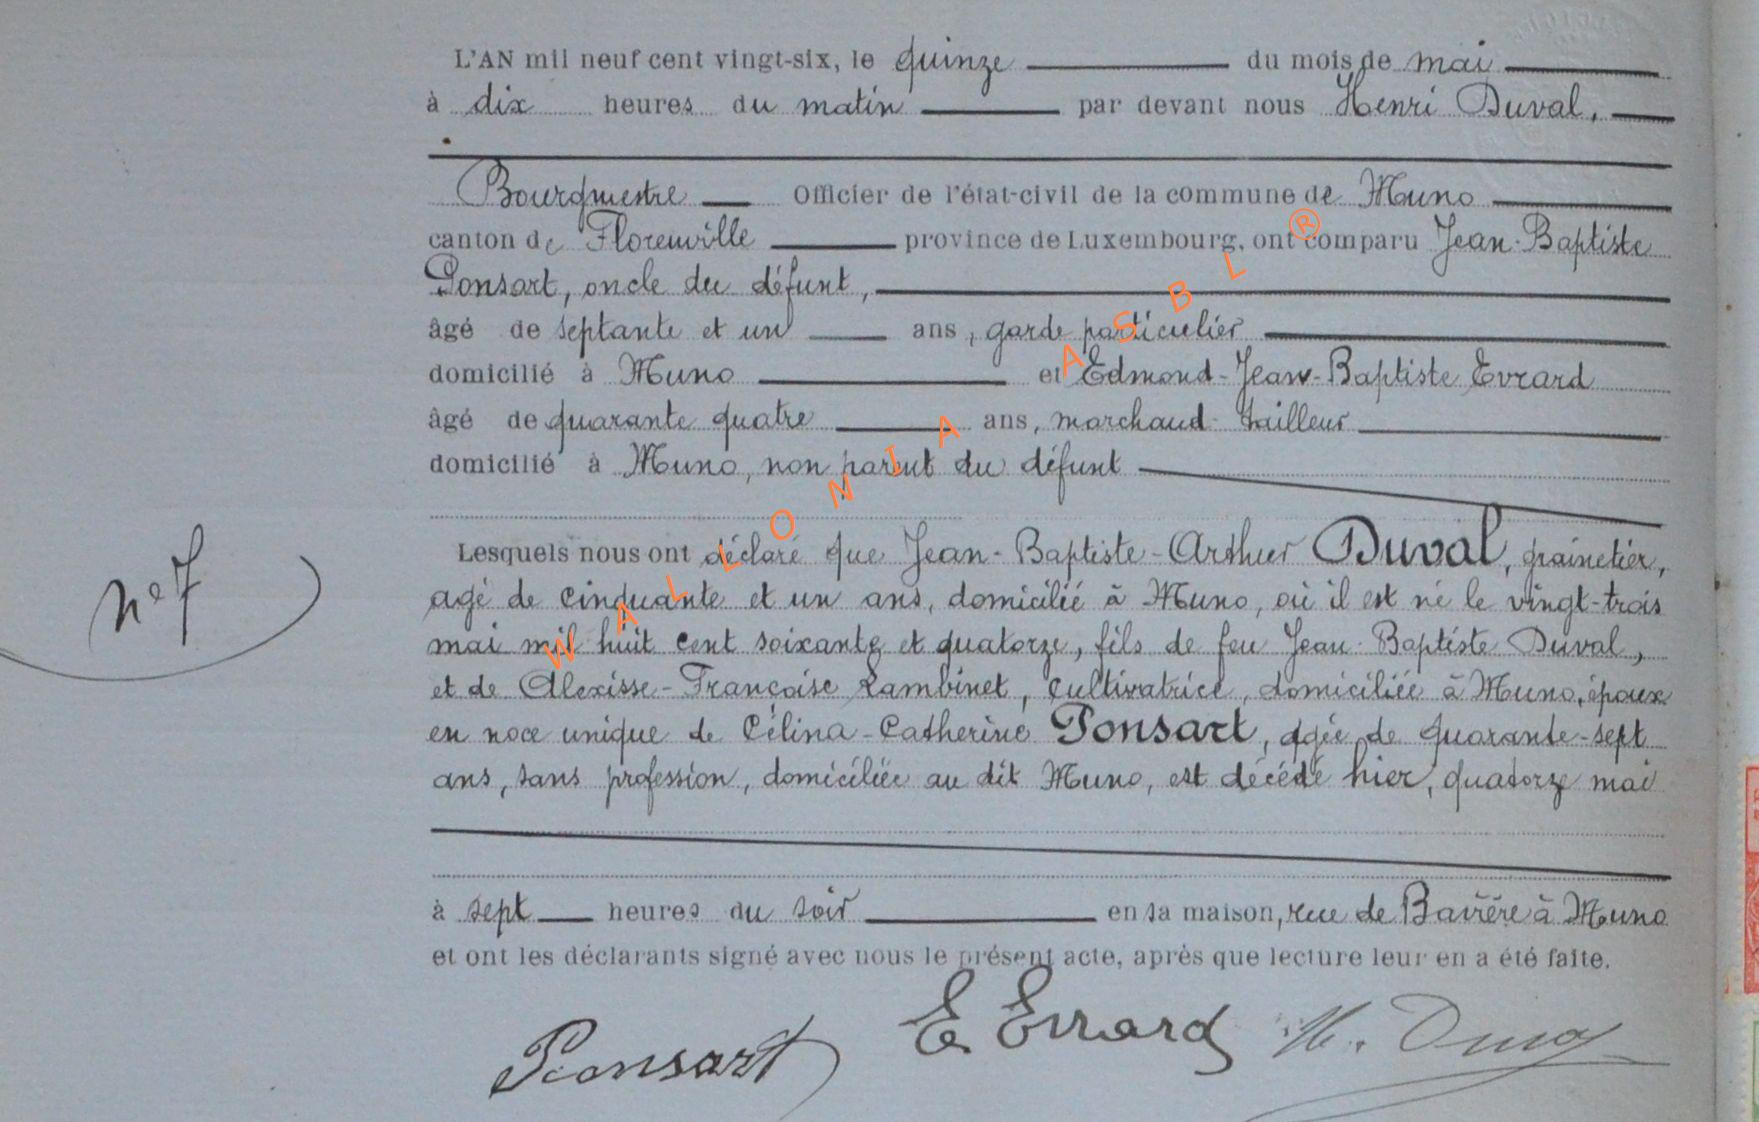 L'AN mil neuf cent vingt-six, le quinze du mois de mai
à dix heures du matin par devant nous Henri Duval,
Bourgmestre Officier de l'état-civil de la commune de Muno
canton de Florenville province de Luxembourg, ont comparu Jean-Baptiste
Ponsart, oncle du défunt,
âgé de septante et un ans, garde particulier
domicilié à Muno et Edmond-Jean-Baptiste Evrard
âgé de quarante quatre ans, marchand-tailleur
domicilié à Muno, non parent du défunt
Lesquels nous ont déclaré que Jean-Baptiste-Arthur Duval, grainetier,
agé de cinquante et un ans, domicilié à Muno, où il est né le vingt-trois
mai mil huit cent soixante et quatorze, fils de feu Jean-Baptiste Duval,
et de Alexisse-Françoise Lambinet, cultivatrice, domiciliée à Muno, époux
en noce unique de Célina-Catherine Ponsart, agée de quarante-sept
ans, sans profession, domiciliée au dit Muno, est décédé hier, quatorze mai
à sept heures du soir en sa maison, rue de Bavière à Muno
et ont les déclarants signé avec nous le présent acte, après que lecture leur en a été faite.
Ponsart E Evrard H. Duval
n° 7
WALLONIA ASBL ®